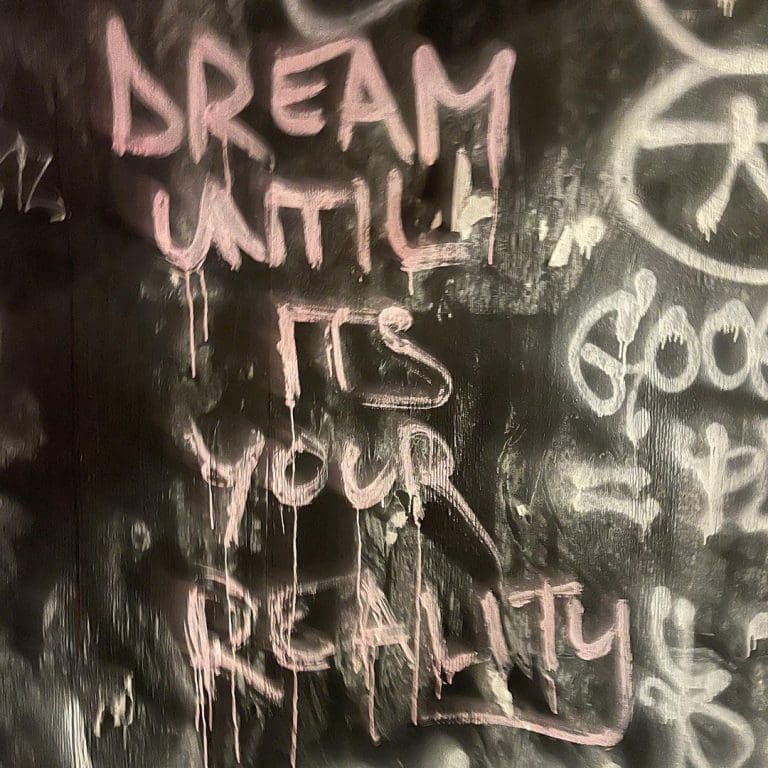 DREAM
UNTIL
ITS
YOUR
REALITY
GOOD
=